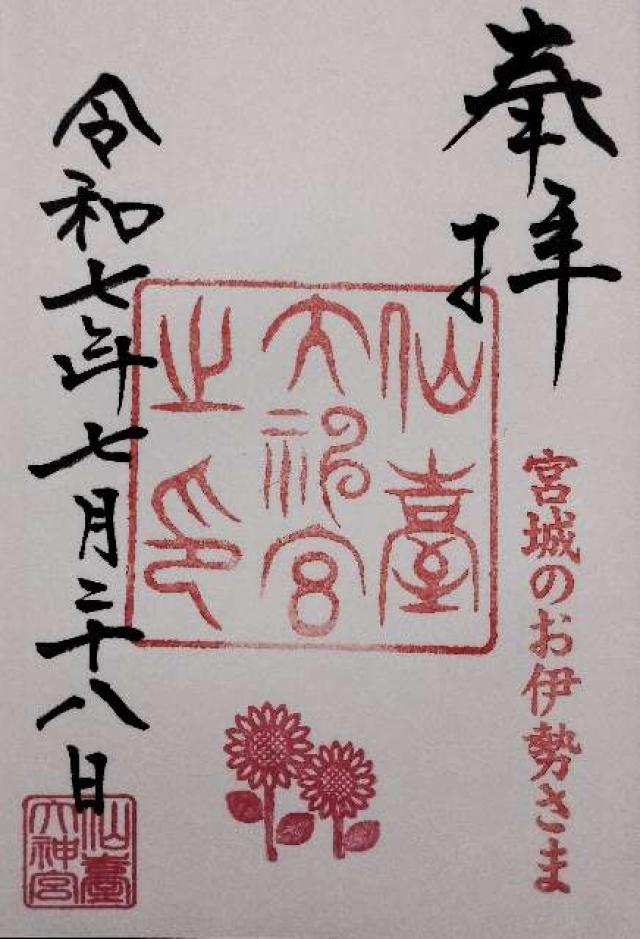 奉拝
宮城のお伊勢さま
仙臺
大神宮
之印
令和七年七月二十八日
仙臺
大神宮